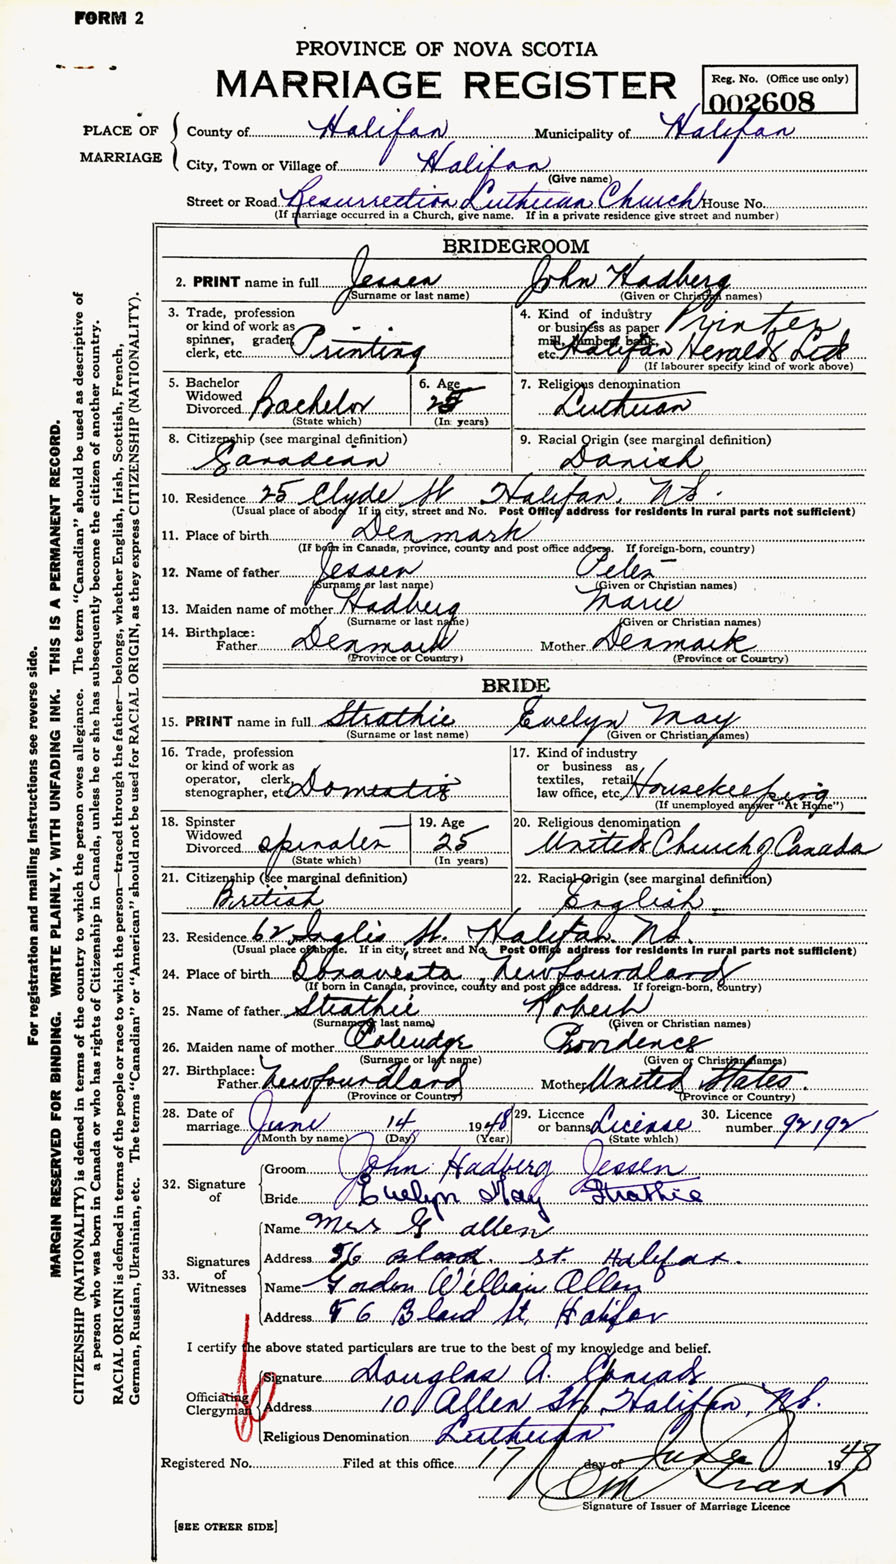 FORM 2
PROVINCE OF NOVA SCOTIA
MARRIAGE REGISTER
Reg. No. (Office use only)
002608
PLACE OF MARRIAGE
County of Halifax Municipality of Halifax
City, Town or Village of Halifax
(Give name)
Street or Road Resurrection Lutheran Church House No.
(If marriage occurred in a Church, give name. If in a private residence give street and number)
BRIDEGROOM
2. PRINT name in full Jessen John Hadberg
(Surname or last name) (Given or Christian names)
3. Trade, profession or kind of work as spinner, grader, clerk, etc. Printing
4. Kind of industry or business as paper mill, lumber, bank, etc. Printer
Halifax Herald Ltd
(If labourer specify kind of work above)
5. Bachelor Widowed Divorced Bachelor
(State which)
6. Age 25
(In years)
7. Religious denomination
Lutheran
8. Citizenship (see marginal definition)
Canadian
9. Racial Origin (see marginal definition)
Danish
10. Residence 25 Clyde St Halifax, N.S.
(Usual place of abode. If in city, street and No. Post Office address for residents in rural parts not sufficient)
11. Place of birth Denmark
(If born in Canada, province, county and post office address. If foreign-born, country)
12. Name of father Jessen Peter
(Surname or last name) (Given or Christian names)
13. Maiden name of mother Hadberg Marie
(Surname or last name) (Given or Christian names)
14. Birthplace:
Father Denmark Mother Denmark
(Province or Country) (Province or Country)
BRIDE
15. PRINT name in full Strathie Evelyn May
(Surname or last name) (Given or Christian names)
16. Trade, profession or kind of work as operator, clerk, stenographer, etc. Domestic
17. Kind of industry or business as textiles, retail, law office, etc. Housekeeping
(If unemployed answer "At Home")
18. Spinster Widowed Divorced Spinster
(State which)
19. Age 25
(In years)
20. Religious denomination
United Church of Canada
21. Citizenship (see marginal definition)
British
22. Racial Origin (see marginal definition)
English
23. Residence 62 Inglis St. Halifax N.S.
(Usual place of abode. If in city, street and No. Post Office address for residents in rural parts not sufficient)
24. Place of birth Bonavesta, Newfoundland
(If born in Canada, province, county and post office address. If foreign-born, country)
25. Name of father Strathie Robert
(Surname or last name) (Given or Christian names)
26. Maiden name of mother Providence
(Surname or last name) (Given or Christian names)
27. Birthplace:
Father Newfoundland Mother United States.
(Province or Country) (Province or Country)
28. Date of marriage June 14 1948
(Month by name) (Day) (Year)
29. Licence or banns License
(State which)
30. Licence number 92192
32. Signature of
Groom John Hadberg Jessen
Bride Evelyn May Strathie
33. Signatures of Witnesses
Name Mrs G Allen
Address 56 Bland St. Halifax.
Name Gordon William Allen
Address 56 Bland St. Halifax
I certify the above stated particulars are true to the best of my knowledge and belief.
Officiating Clergyman
Signature Douglas A. Conrad
Address 10 Allen St. Halifax, N.S.
Religious Denomination Lutheran
Registered No. Filed at this office 17 day of June 1948
Signature of Issuer of Marriage Licence
[SEE OTHER SIDE]
For registration and mailing instructions see reverse side.
MARGIN RESERVED FOR BINDING. WRITE PLAINLY, WITH UNFADING INK. THIS IS A PERMANENT RECORD.
CITIZENSHIP (NATIONALITY) is defined in terms of the country to which the person owes allegiance. The term "Canadian" should be used as descriptive of
a person who was born in Canada or who has rights of Citizenship in Canada, unless he or she has subsequently become the citizen of another country.
RACIAL ORIGIN is defined in terms of the people or race to which the person—traced through the father—belongs, whether English, Irish, Scottish, French,
German, Russian, Ukrainian, etc. The terms "Canadian" or "American" should not be used for RACIAL ORIGIN, as they express CITIZENSHIP (NATIONALITY).